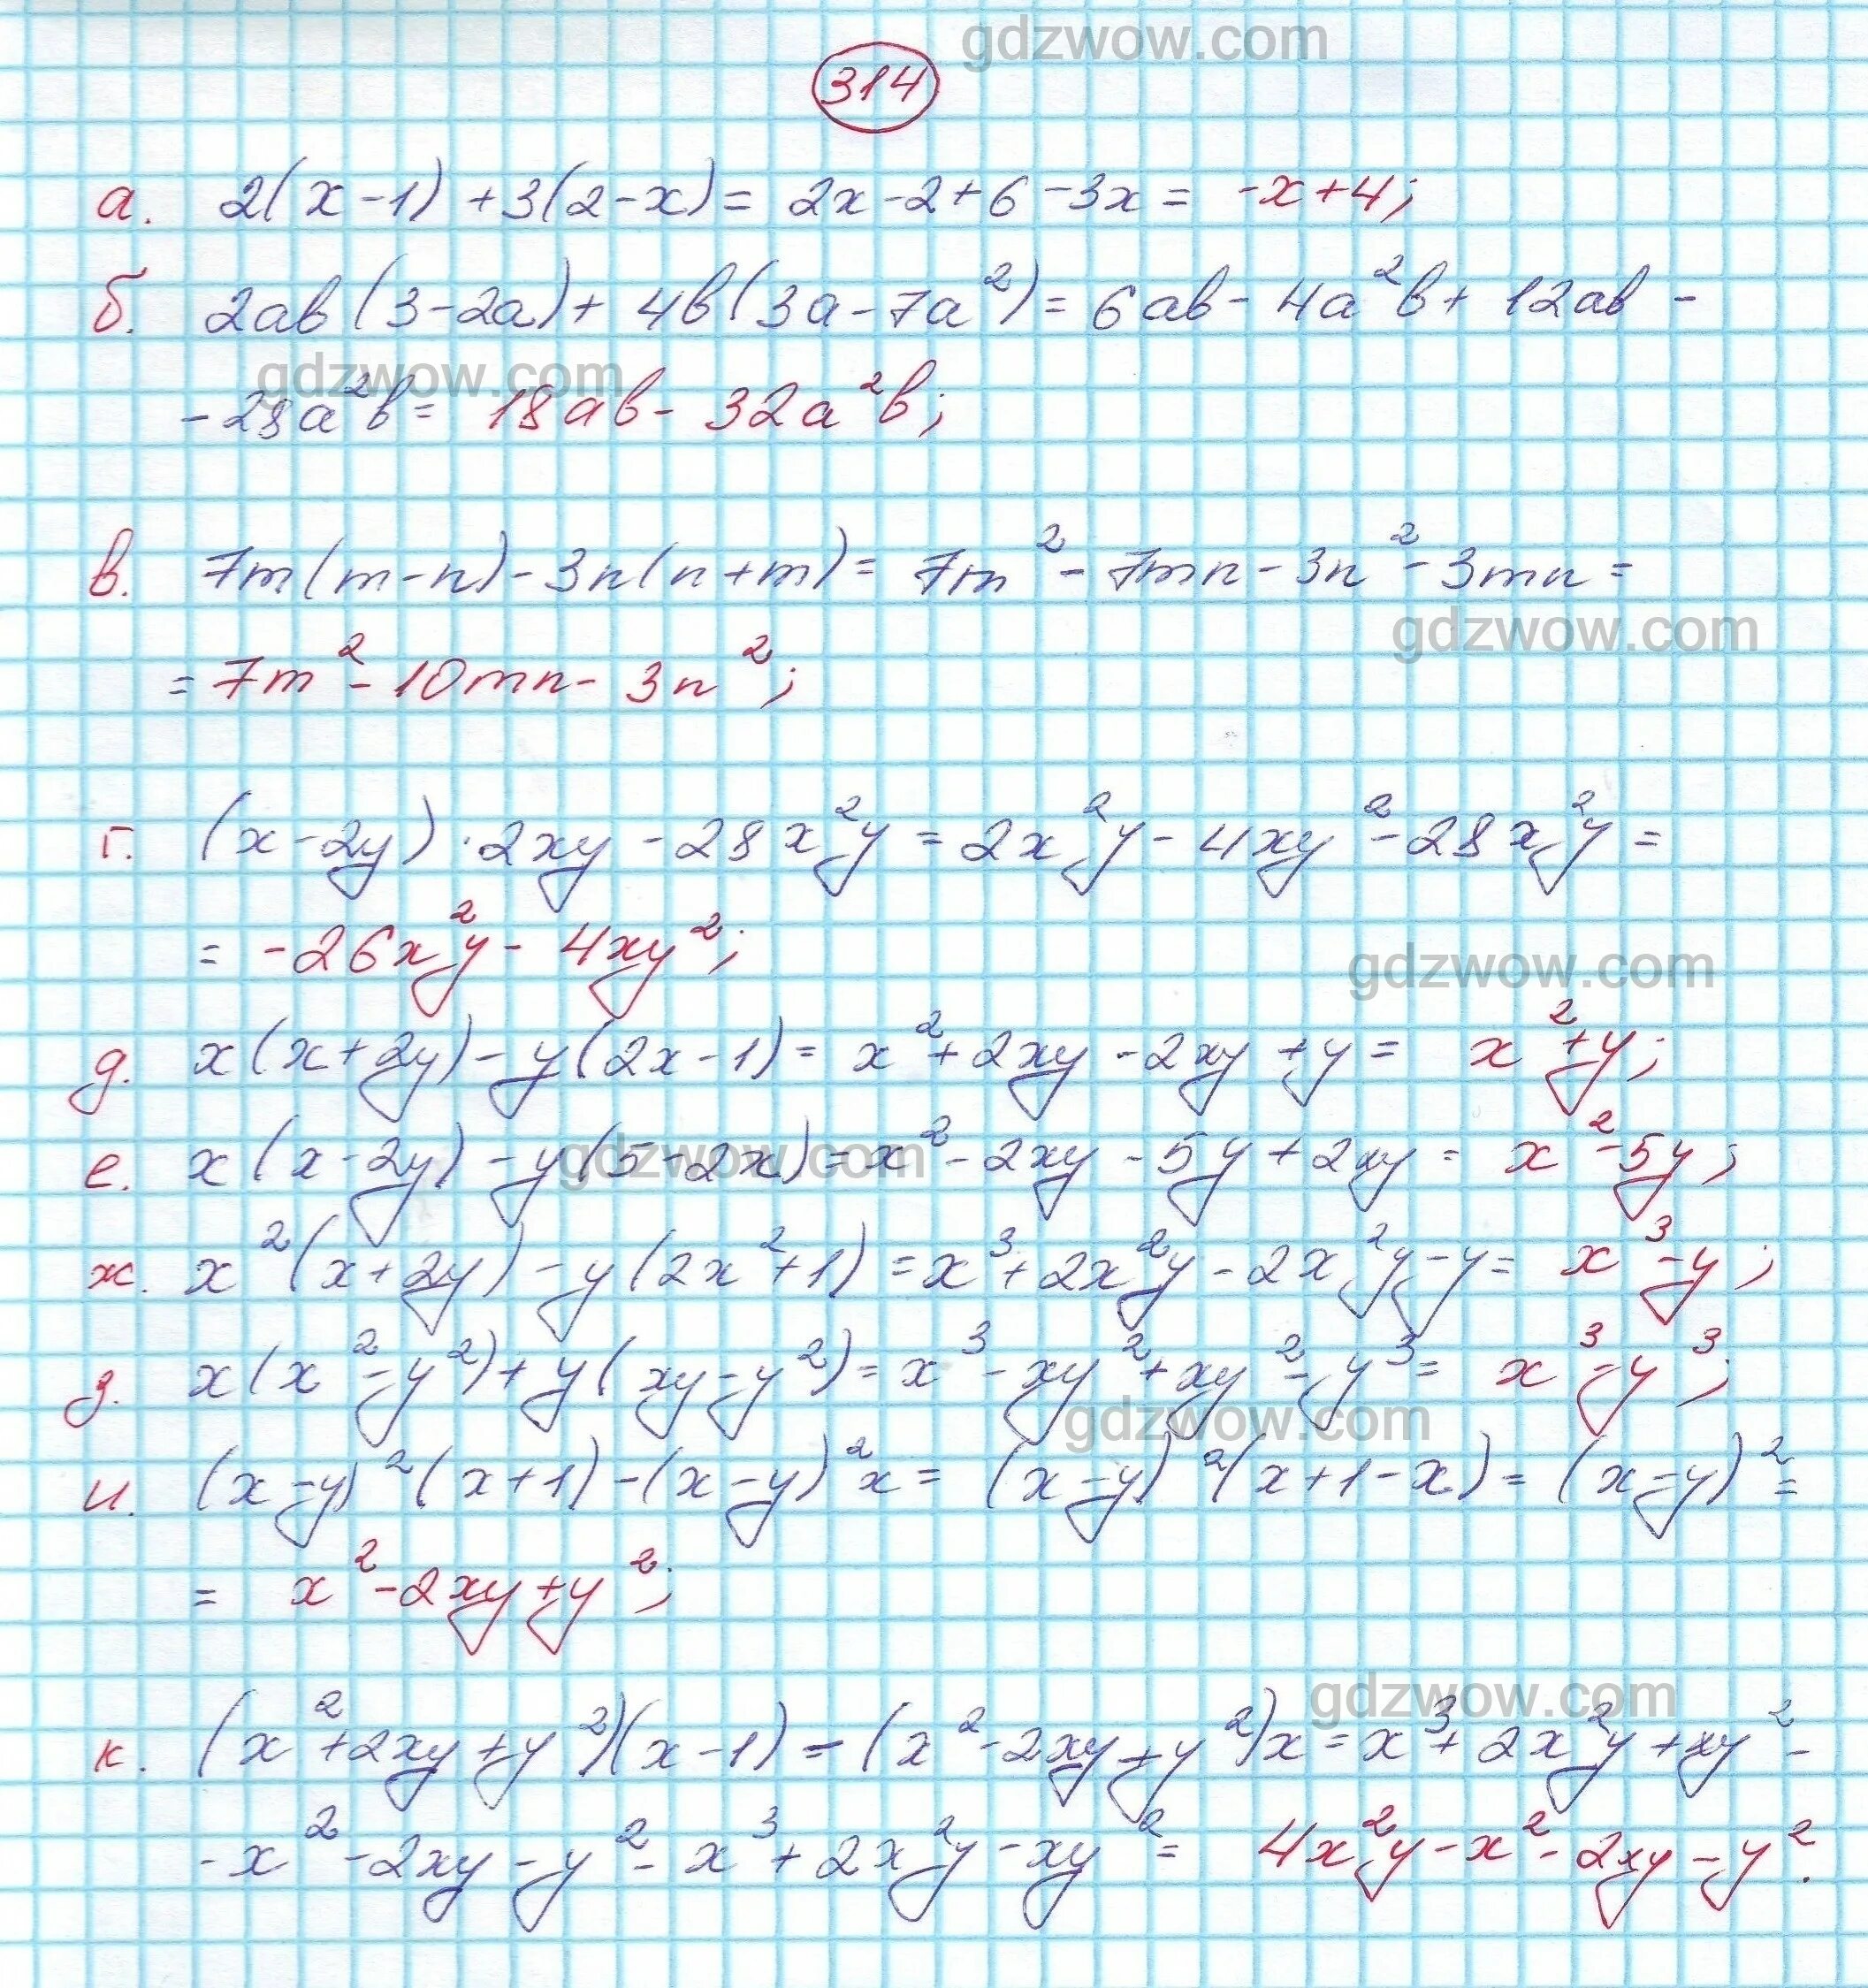 gdzwow.com
314
а. 2(x-1)+3(2-x)= 2x-2+6-3x= -x+4;
б. 2ab(3-2a)+ 4b(3a-7a²)= 6ab- 4a²b+ 12ab -
gdzwow.com
-28a²b= 18ab- 32a²b;
в. 7m(m-n)-3n(n+m)= 7m²- 7mn-3n²-3mn=
gdzwow.com
= 7m²-10mn- 3n²;
г. (x-2y)·2xy-28x²y=2x²y-4xy²-28x²y=
= -26x²y- 4xy²;
gdzwow.com
д. x(x+2y)-y(2x-1)= x²+2xy-2xy+y= x²+y;
е. x(x-2y)-y(5-2x)=x²-2xy-5y+2xy= x²-5y;
gdzwow.com
ж. x²(x+2y)-y(2x²+1)=x³+2x²y-2x²y-y= x³-y;
з. x(x²-y²)+y(xy-y²)=x³-xy²+xy²-y³= x³-y³;
gdzwow.com
и. (x-y)²(x+1)-(x-y)²x= (x-y)²(x+1-x)=(x-y)²=
= x²-2xy+y²;
gdzwow.com
к. (x²+2xy+y²)(x-1)-(x²-2xy+y²)x=x³+2x²y+xy²-
-x²-2xy-y²-x³+2x²y-xy²= 4x²y-x²-2xy-y².